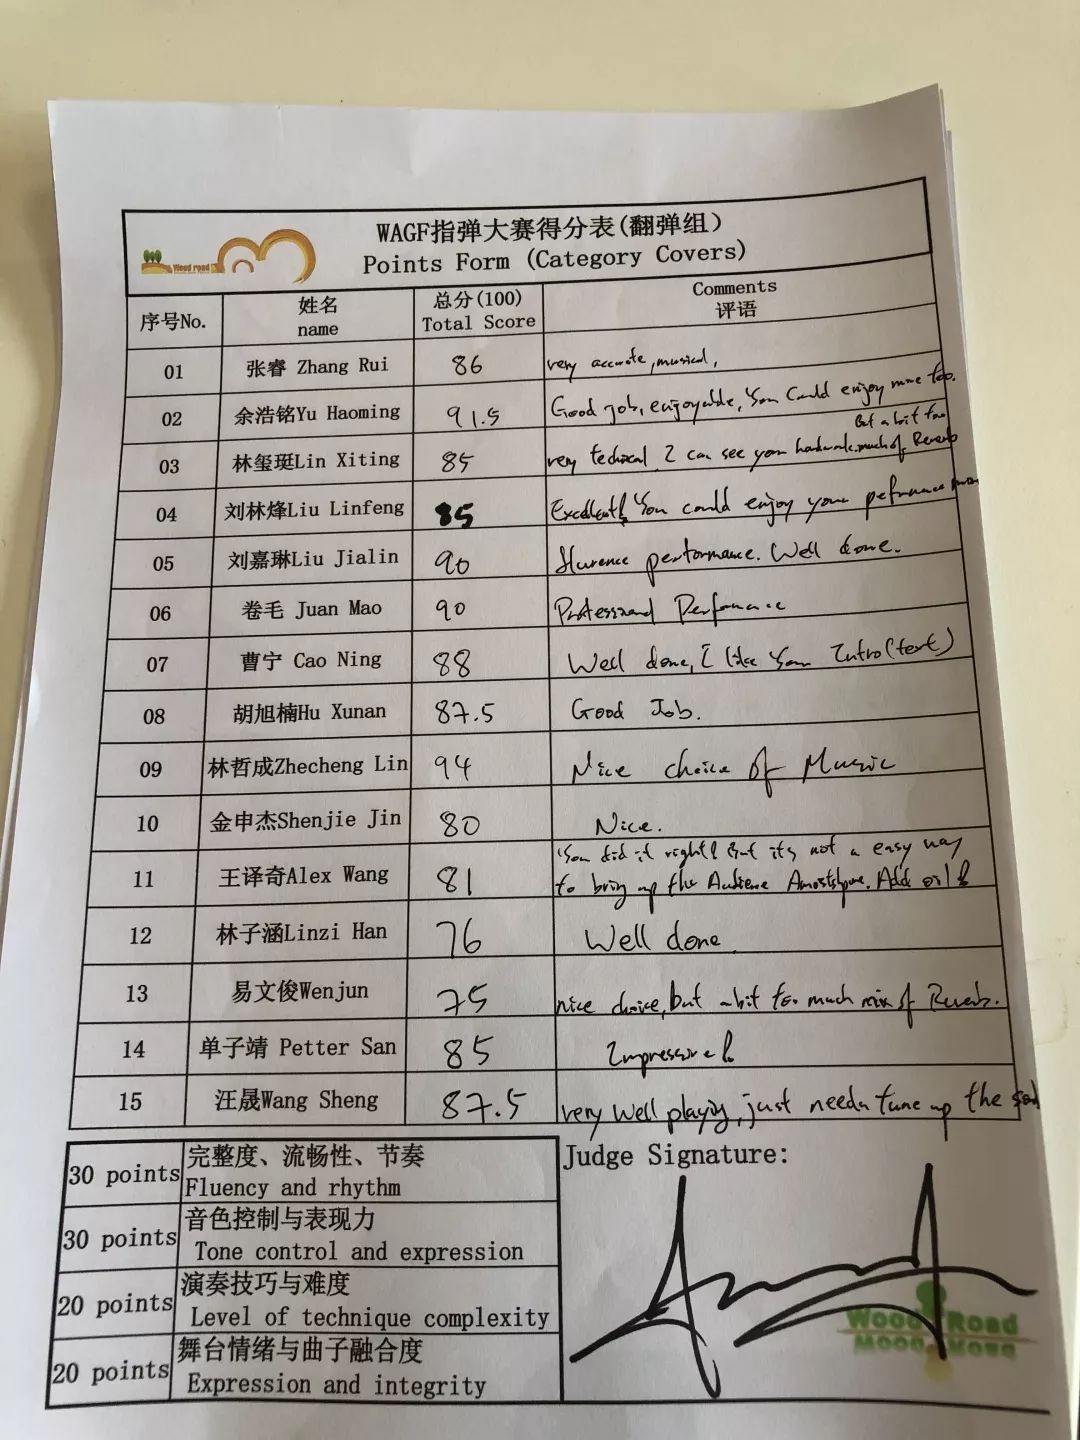 WAGF指弹大赛得分表(翻弹组)
Points Form (Category Covers)
Wood road
序号No.
姓名
name
总分(100)
Total Score
Comments
评语
01 张睿 Zhang Rui 86 very accurate, musical,
02 余浩铭Yu Haoming 91.5 Good job, enjoyable, You Could enjoy more too.
03 林玺珽Lin Xiting 85 very technical. I can see your hardwork. But a bit too
much of Reverb
04 刘林烽Liu Linfeng 85 Excellent! You could enjoy your
05 刘嘉琳Liu Jialin 90 performance. Well done.
06 卷毛 Juan Mao 90
07 曹宁 Cao Ning 88 Well done, I like your Intro(text)
08 胡旭楠Hu Xunan 87.5 Good Job.
09 林哲成Zhecheng Lin 94 Nice choice of Music
10 金申杰Shenjie Jin 80 Nice.
11 王译奇Alex Wang 81 You did it right! But its not a easy way
to bring up the Add oil!
12 林子涵Linzi Han 76 Well done
13 易文俊Wenjun 75 nice choice, but a bit too much mix of Reverb.
14 单子靖 Petter San 85 Impressive!
15 汪晟Wang Sheng 87.5 very well playing, just needa tune up the
30 points 完整度、流畅性、节奏
Fluency and rhythm
30 points 音色控制与表现力
Tone control and expression
20 points 演奏技巧与难度
Level of technique complexity
20 points 舞台情绪与曲子融合度
Expression and integrity
Judge Signature:
Wood Road